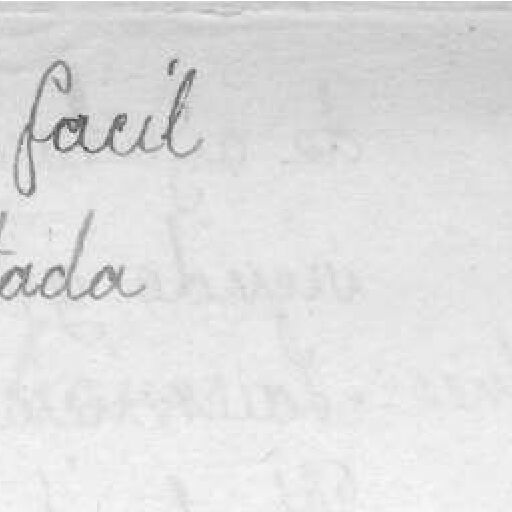 facil
tada